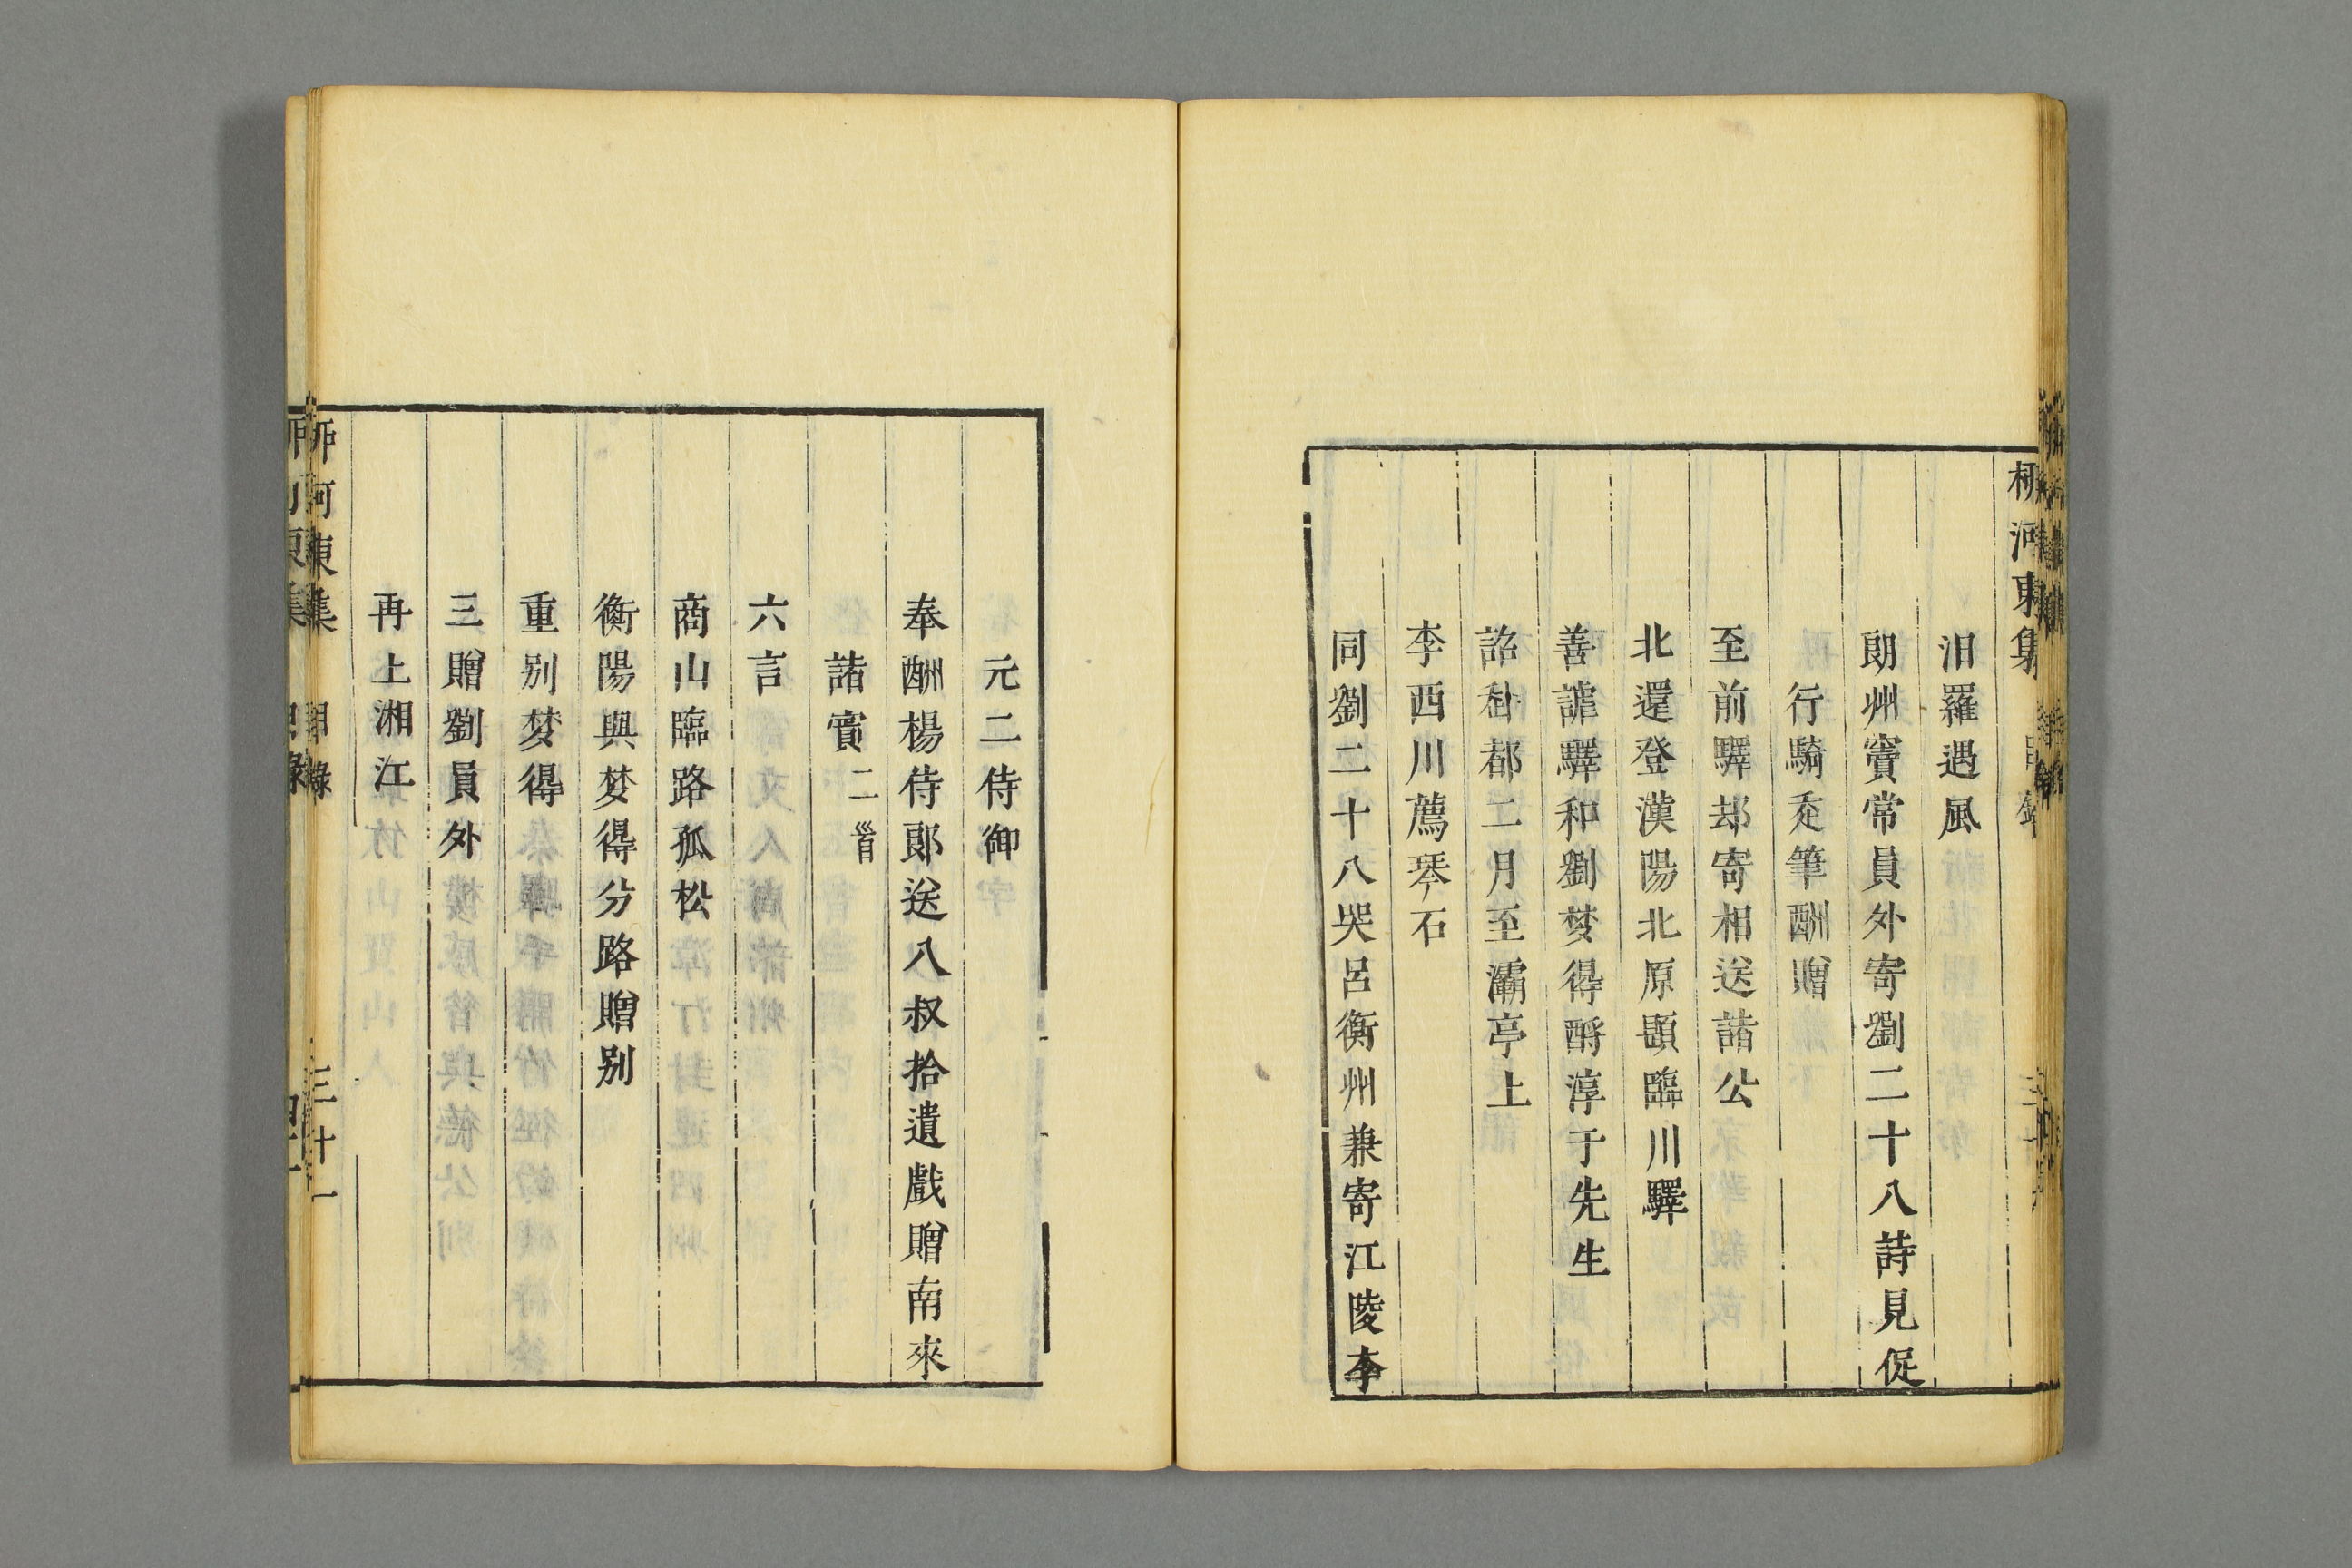 柳河東集
汨羅遇風
朗州竇常員外寄劉二十八詩見促
行騎走筆酬贈
至前驛却寄相送諸公
北還登漢陽北原題臨川驛
善謔驛和劉夢得酹淳于先生
詔赴都二月至灞亭上
李西川薦琴石
同劉二十八哭呂衡州兼寄江陵李
元二侍御
奉酬楊侍郎送八叔拾遺戲贈南來
諸賓二首
六言
商山臨路孤松
衡陽與夢得分路贈别
重别夢得
三贈劉員外
再上湘江
柳河東集 目錄 三十一